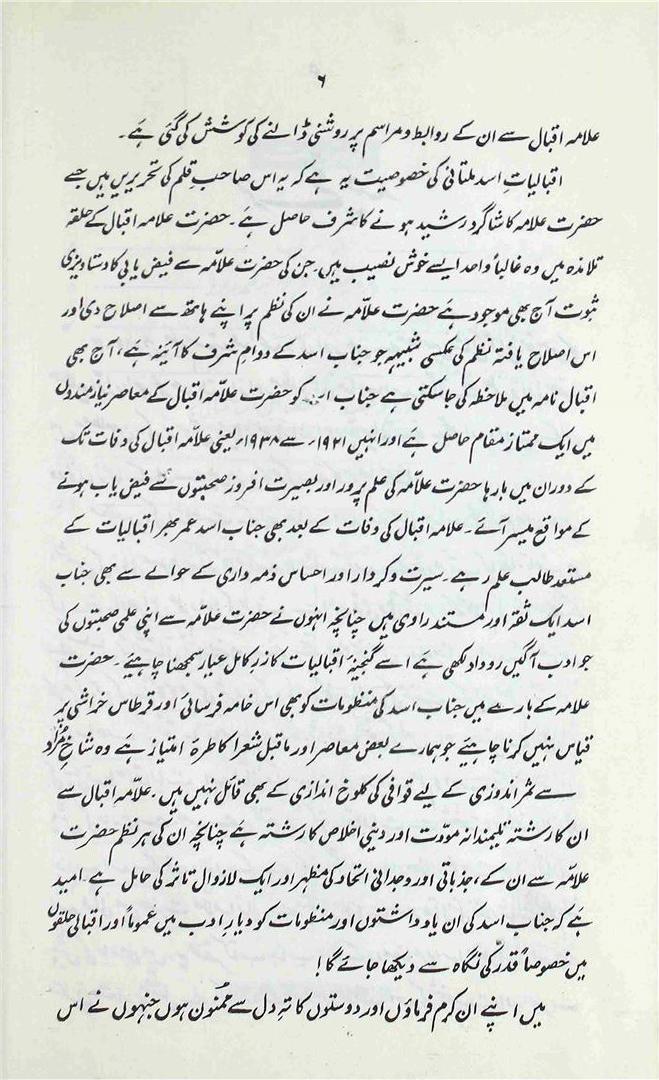 ۶
علامہ اقبال سے ان کے روابط و مراسم پر روشنی ڈالنے کی کوشش کی گئی ہے۔
اقبالیاتِ اسد ملتانی کی خصوصیت یہ ہے کہ یہ اس صاحبِ قلم کی تحریریں ہیں جسے
حضرت علامہ کا شاگردِ رشید ہونے کا شرف حاصل ہے۔ حضرت علامہ اقبال کے حلقہ
تلامذہ میں وہ غالباً واحد ایسے خوش نصیب ہیں جن کی حضرت علامّہ سے فیض یابی کا دستاویزی
ثبوت آج بھی موجود ہے حضرت علامّہ نے ان کی نظم پر اپنے ہاتھ سے اصلاح دی اور
اس اصلاح یافتہ نظم کی عکسی شبیہہ جو جناب اسد کے دوامِ شرف کا آئینہ ہے، آج بھی
اقبال نامہ میں ملاحظہ کی جا سکتی ہے جناب اسد کو حضرت علامّہ اقبال کے معاصر نیاز مندوں
میں ایک ممتاز مقام حاصل ہے اور انہیں ۱۹۲۱ء سے ۱۹۳۸ء یعنی علامّہ اقبال کی وفات تک
کے دوران میں بارہا حضرت علامّہ کی علم پرور اور بصیرت افروز صحبتوں سے فیض یاب ہونے
کے مواقع میسر آئے۔ علامہ اقبال کی وفات کے بعد بھی جناب اسد عمر بھر اقبالیات کے
مستعد طالب علم رہے۔ سیرت و کردار اور احساس ذمہ داری کے حوالے سے بھی جناب
اسد ایک ثقہ اور مستند راوی ہیں چنانچہ انہوں نے حضرت علامّہ سے اپنی علمی صحبتوں کی
جو ادب آگیں روداد لکھی ہے اسے گنجینۂ اقبالیات کا زرِ کامل عیار سمجھنا چاہیئے۔ حضرت
علامہ کے بارے میں جناب اسد کی منظومات کو بھی اس خامہ فرسائی اور قرطاس خراشی پر
قیاس نہیں کرنا چاہیئے جو ہمارے بعض معاصر اور ماقبل شعرا کا طرۂ امتیاز ہے وہ شاخِ مُراد
سے ثمر اندوزی کے لیے قوافی کی کلوخ اندازی کے بھی قائل نہیں ہیں۔ علامّہ اقبال سے
ان کا رشتہ تلیمذانہ موّدت اور دینی اخلاص کا رشتہ ہے چنانچہ ان کی ہر نظم حضرت
علامّہ سے ان کے، جذباتی اور وجدانی اتحاد کی مظہر اور ایک لازوال تاثر کی حامل ہے امید
ہے کہ جناب اسد کی ان یادداشتوں اور منظومات کو دیارِ ادب میں عموماً اور اقبالی حلقوں
میں خصوصاً قدر کی نگاہ سے دیکھا جائے گا!
میں اپنے ان کرم فرماؤں اور دوستوں کا تہِ دل سے ممنون ہوں جنہوں نے اس